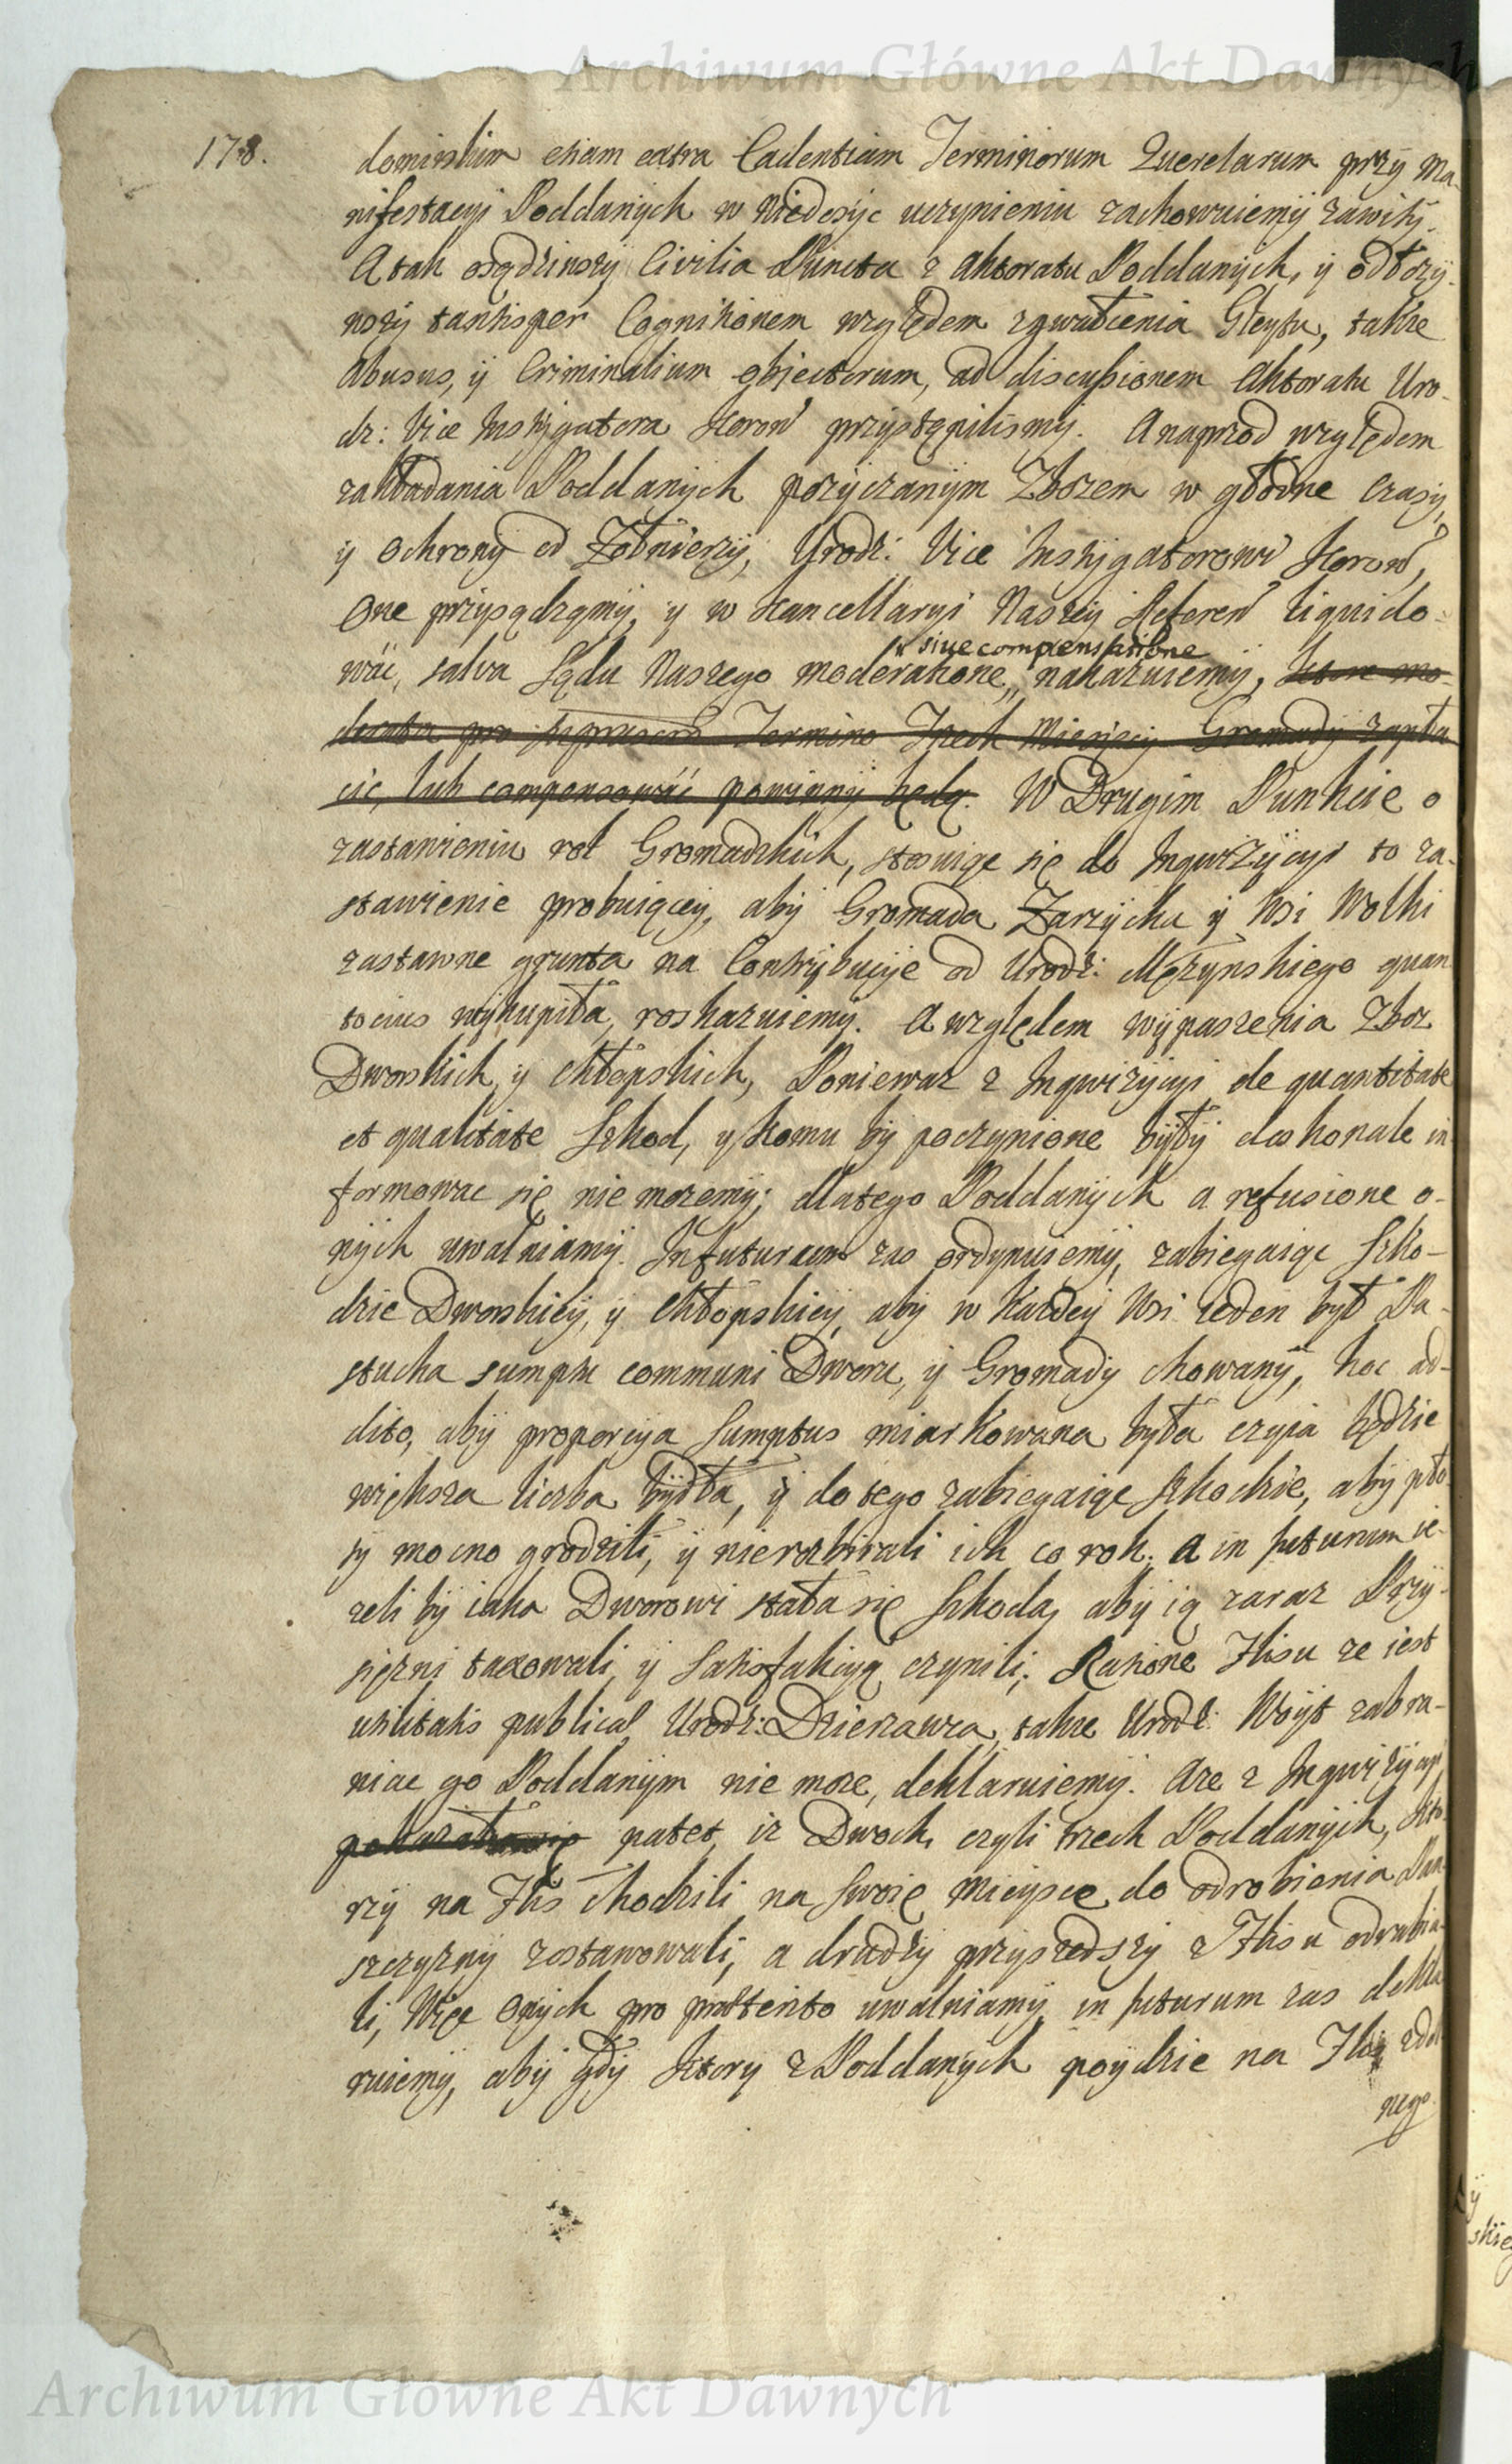 Archiwum Główne Akt Dawnych
178.
dominskim etiam extra Cadentiam Terminorum Querelarum przy Ma-
nifestacyi Poddanych w Niedosyc uczynieniu zachowuiemy zawity.
A tak osądziwszy Civilia Puncta z Aktoratu Poddanych, y odłozy-
wszy tantisper Cognitionem względem zgwałcenia Gleytu, takze
Abusus, y Criminalium objectorum, ad discussionem Aktoratu Uro-
dz: Vice Instygatora Koron przystąpilismy. A naprzod względem
zakładania Poddanych pozyczanym Zbozem w głodne Czasy,
y Ochrony od Zołnierzy, Urodz: Vice Instygatorowi Koron,
One przysądzamy, y w Kancellaryi Naszey Referen liquido-
siue compensatione
wać, salva Sądu Naszego moderatione, nakazuiemy, ktore mo-
derata pro Termino Trzech Miesięcy Gromady zapła-
cic, lub compensować powinny będą. W Drugim Punkcie o
zastawieniu rol Gromadzkich, stosuiąc się do Inqwizycyi to za-
stawienie probuiącey, aby Gromada Zarzycka y Wsi Wolki
zastawne grunta na Contrybucyie od Urodz: Męzynskiego quan-
tocius wykupiła, roskazuiemy. A względem wypaszenia Zboz
Dworskich, y Chłopskich, Poniewaz z Inqwizycyi de quantitate
et qualitate Szkod, y komu by poczynione były doskonale in-
formowac się nie mozemy; dlatego Poddanych a refusione o-
nych uwalniamy. In futurum zas ordynuiemy, zabiegaiąc Szko-
dzie Dworskiey, y Chłopskiey, aby w Kazdey Wsi ieden był Pa-
stucha sumptu communi Dworu, y Gromady chowany, hoc ad-
dito, aby proporcya Sumptus miarkowana była czyia będzie
większa liczba bydła, y do tego zabiegaiąc szkodzie, aby pło-
ty mocno grodzili, y nierozbirali ich co rok. A in futurum ie-
zeli by iaka Dworowi stała się Szkoda, aby ią zaraz Przy-
sięzni taxowali, y Satisfakcyą czynili; Ratione Flisu ze iest
utilitatis publicae, Urodz: Dzierzawca, takze Urodz: Woyt zabra-
niac go Poddanym nie moze, deklaruiemy. Aze z Inqwizycyi
patet, iz Dwoch, czyli trzech Poddanych, kto-
rzy na Flis chodzili na Swoie Mieysce do odrobienia Pan-
szczyzny zostawowali, a drudzy przyszedszy z Flisu odrabia-
li, Więc Onych pro praeterito uwalniamy, in futurum zas dekla-
ruiemy, aby gdy ktory z Poddanych poydzie na Flis zdol-
nego
Archiwum Główne Akt Dawnych